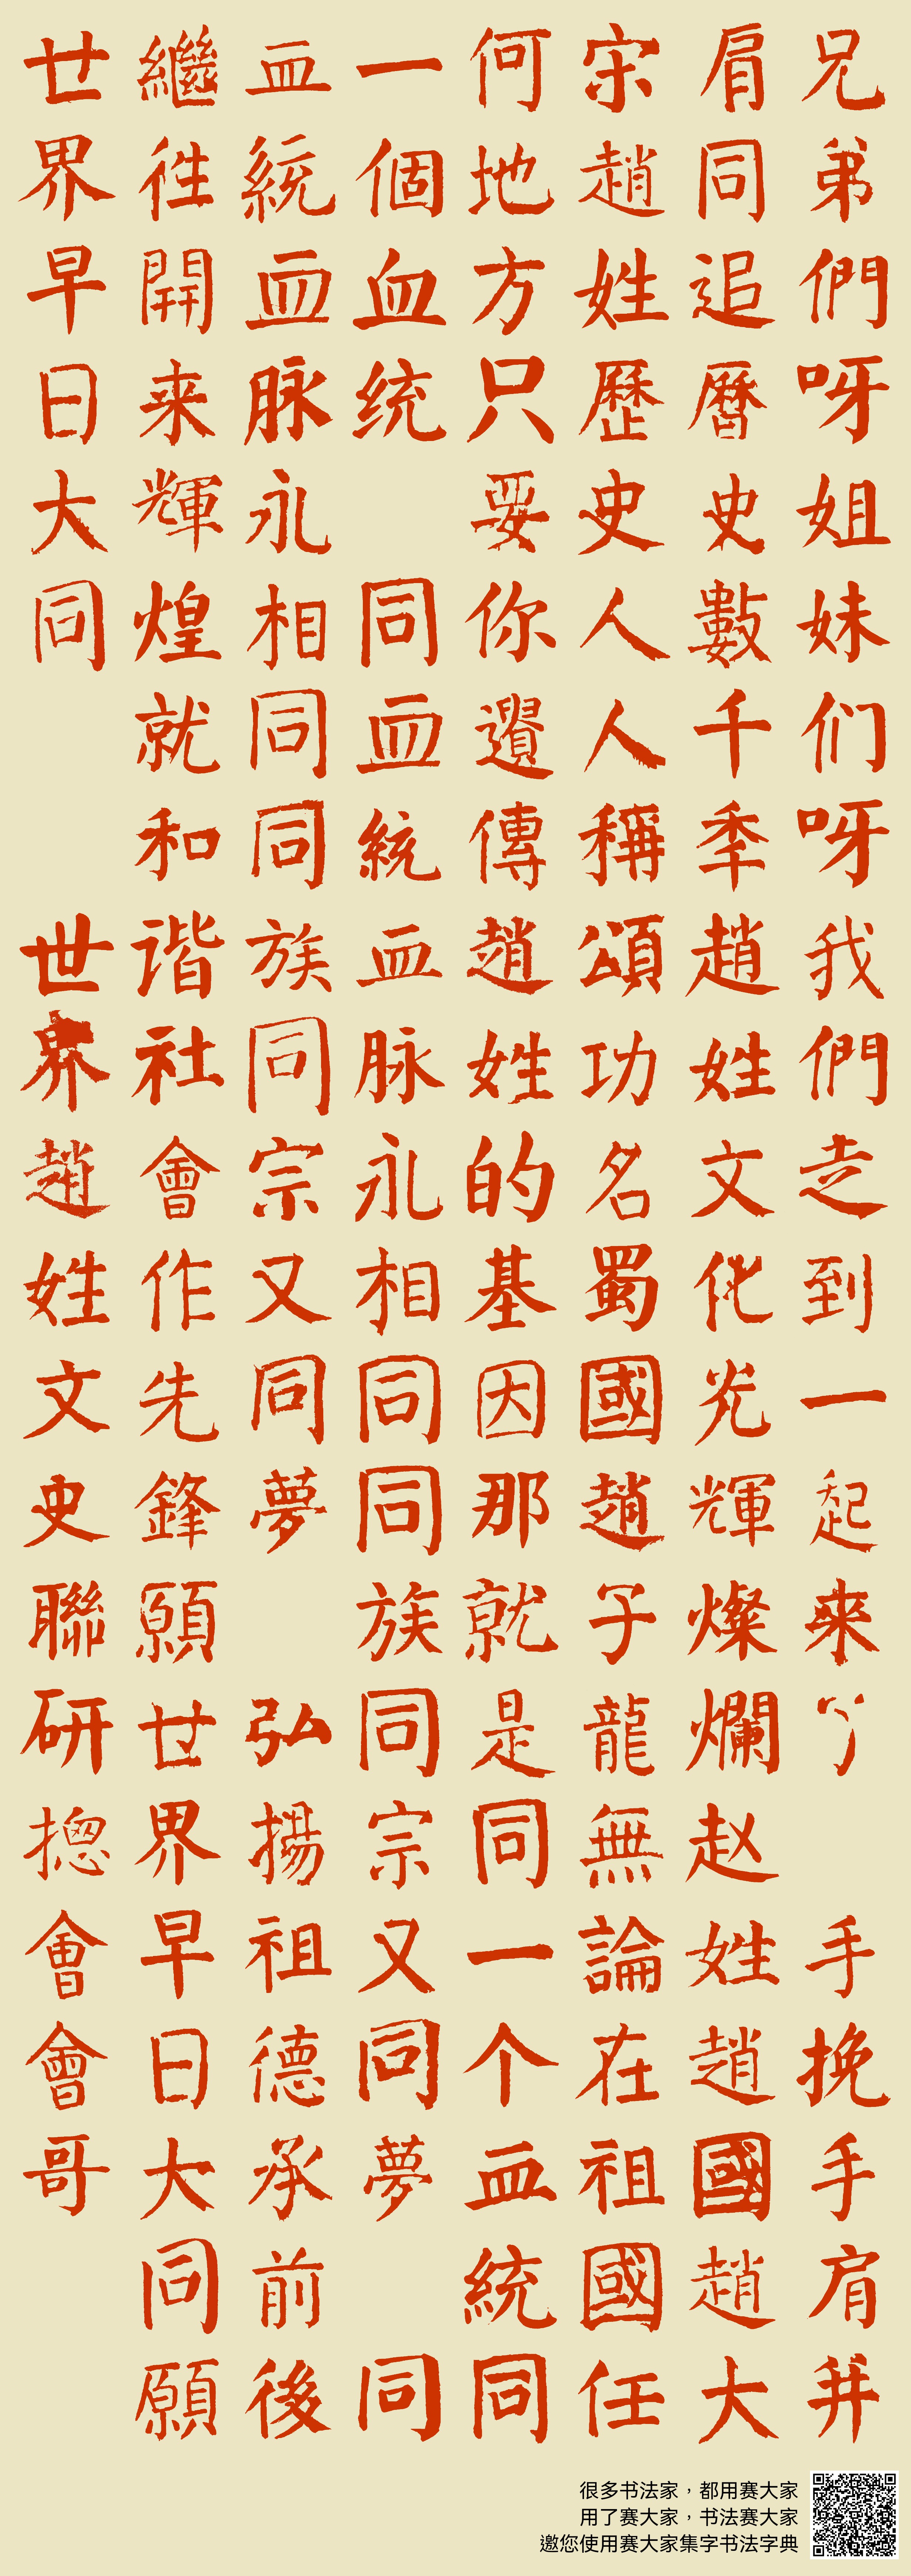 兄弟們呀姐妹们呀我們走到一起來丫 手挽手肩并
肩同追曆史數千秊趙姓文化光輝燦爛赵姓趙國趙大
宋趙姓歷史人人稱頌功名蜀國趙子龍無論在祖國任
何地方只要你遺傳趙姓的基因那就是同一个血統同
一個血统 同血統血脉永相同同族同宗又同夢 同
血統血脉永相同同族同宗又同夢 弘揚祖德承前後
繼往開来輝煌就和谐社會作先鋒願世界早日大同願
世界早日大同 世界趙姓文史聯研摠會會哥
很多书法家，都用赛大家
用了赛大家，书法赛大家
邀您使用赛大家集字书法字典